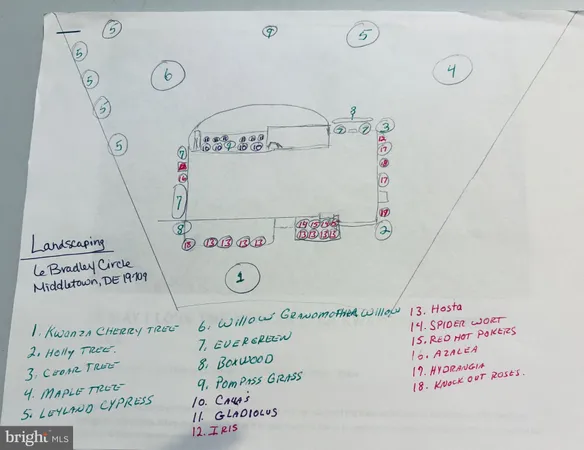 9
5
5
5
6
4
5
5
8
3
5
7
7
8
2
18 13 13 13 13
1
Landscaping
6 Bradley Circle
Middletown, DE 19709
1. KWONZA CHERRY TREE
2. HOLLY TREE.
3. CEDAR TREE
4. MAPLE TREE
5. LEYLAND CYPRESS
6. WILLOW GRANDMOTHER WILLOW
7. EVERGREEN
8. BOXWOOD
9. POMPASS GRASS
10. CALLA'S
11. GLADIOLUS
12. IRIS
13. Hosta
14. SPIDER WORT
15. RED HOT POKERS
16. AZALEA
17. HYDRANGIA
18. KNOCK OUT ROSES.
bright MLS